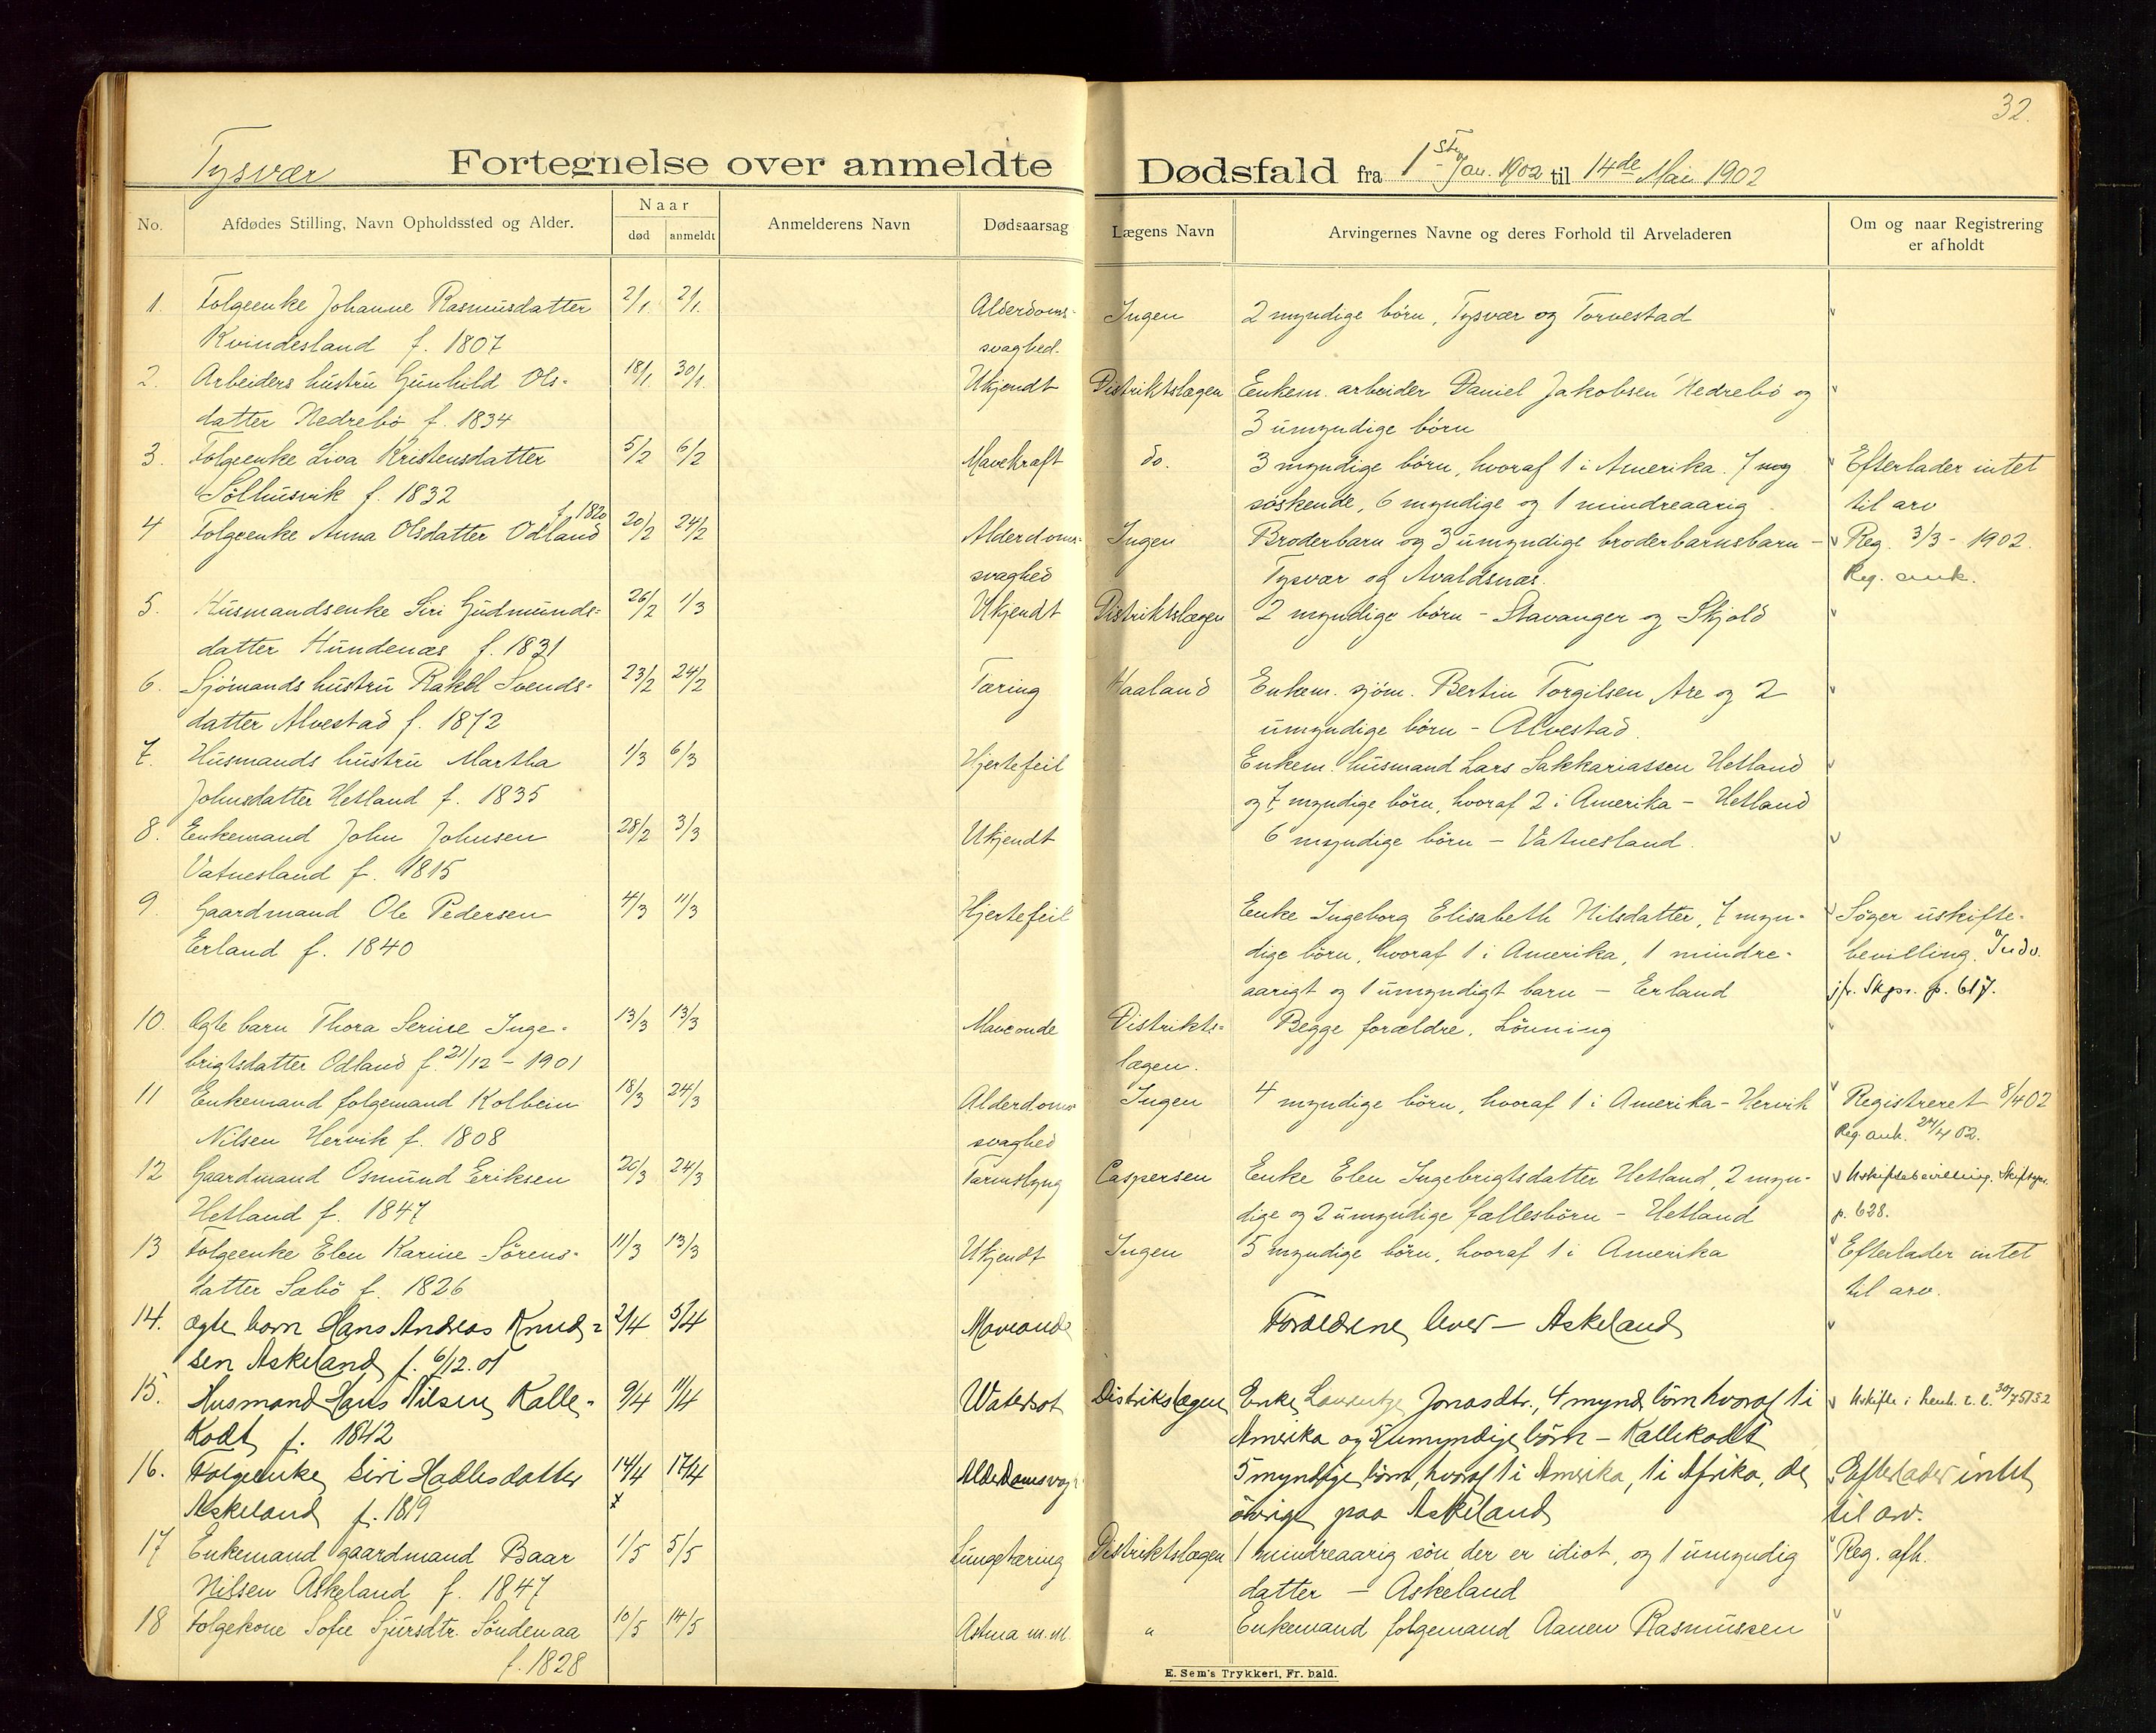 32.
Tysvær Fortegnelse over anmeldte Dødsfald fra 1ste Jan. 1902 til 14de Mai 1902
No. Afdødes Stilling, Navn Opholdssted og Alder. Naar død anmeldt Anmelderens Navn Dødsaarsag Lægens Navn Arvingernes Navne og deres Forhold til Arveladeren Om og naar Registrering er afholdt
1. Folgeenke Johanne Rasmusdatter 2/1. 2/1. Alderdoms- Ingen 2 myndige børn, Tysvær og Torvestad
Kvindesland f. 1807 svaghed.
2. Arbeiders hustru Gunhild Ols- 18/1. 30/1. Ukjendt Distriktslægen Enkem. arbeider Daniel Jakobsen Nedrebö og
datter Nedrebö f. 1834 3 umyndige börn
3. Folgeenke Liva Kristensdatter 5/2 6/2 Mavekræft do. 3 myndige börn, hvoraf 1 i Amerika. 7 Efterlader intet
Sölhusvik f. 1832 söskende, 6 myndige og 1 mindreaarig til arv
4 Folgeenke Anna Olsdatter Odland f. 1820 20/2 24/2 Alderdoms- Ingen Broderbarn og 3 umyndige broderbarnsbarn - Reg. 3/3 - 1902.
svaghed Tysvær og Avaldsnæs. Reg. auk.
5. Husmandsenke Siri Gudmunds- 26/2 1/3 Ukjendt Distriktslægen 2 myndige börn - Stavanger og Skjold
datter Hundenæs f. 1831
6. Sjömands hustru Rakel Svends- 23/2 24/2 Tæring Haaland Enkem. sjöm. Bertin Torgilsen Are og 2
datter Alvestad f. 1872 umyndige börn - Alvestad.
7. Husmands hustru Martha 1/3 6/3 Hjertefeil Enkem. husmand Lars Sakkariassen Hetland
Johnsdatter Hetland f. 1835 og 7 myndige börn, hvoraf 2 i Amerika - Hetland
8. Enkemand John Johnsen 28/2 3/3 Ukjendt 6 myndige börn - Vatnesland.
Vatnesland f. 1815
9. Gaardmand Ole Pedersen 4/3 11/3 Hjertefeil Enke Ingeborg Elisabeth Nilsdatter, 7 myn- Söger uskifte-
Erland f. 1840 dige börn, hvoraf 1 i Amerika, 1 mindre- bevilling. Indv.
aarigt og 1 umyndigt barn - Erland jfr. Skpr. p. 617.
10. Ægte barn Thora Serine Inge- 13/3 13/3 Maveonde Distrikts- Begge forældre, Lönning
brigtsdatter Odland f. 21/12 - 1901 lægen.
11 Enkemand folgemand Kolbein 18/3 24/3 Alderdoms Ingen 4 myndige börn, hvoraf 1 i Amerika - Hervik Registreret 8/4 02
Nilsen Hervik f. 1808 svaghed Reg. auk. 24/4 02.
12 Gaardmand Osmund Eriksen 20/3 24/3 Tarmslyng Caspersen Enke Elen Ingebrigtsdatter Hetland, 2 myn- Uskiftebevilling. Skiftepr.
Hetland f. 1847 dige og 2 umyndige fællesbörn - Hetland p. 628.
13 Folgeenke Elen Karine Sörens- 11/3 13/3 Ukjendt Ingen 5 myndige börn, hvoraf 1 i Amerika Efterlader intet
datter Sæbö f. 1826 til arv.
14. ægte barn Hans Andreas Knud- 2/4 5/4 Maveonde Forældrene lever - Askeland
sen Askeland f. 6/12.01
15. Husmand Hans Nilsen Kalle- 9/4 11/4 Watersot Distrikslægen Enke Jonasdtr., 4 mynd börn hvoraf 1 i Uskifte i henh. t. l. 30/7 51 § 2
kodt f. 1842 Amerika og umyndige börn - Kallekodt
16. Folgeenke Siri Hadlesdatter 14/4 17/4 Alderdomsvag- 5 myndige börn, hvoraf 1 i Amerika, 1 i Afrika, de Efterlader intet
Askeland f. 1819 övrige paa Askeland til arv.
17 Enkemand gaardmand Baar 1/5 5/5 Lungetæring Distriktslægen 1 mindreaarig sön der er idiot, og 1 umyndig Reg. afh.
Nilsen Askeland f. 1847 datter - Askeland
18 Folgekone Sofie Sjursdtr. Söndenaa 10/5 14/5 Astma m.m. " Enkemand folgemand Aanen Rasmussen
f. 1828
E. Sem's Trykkeri, Fr. hald.